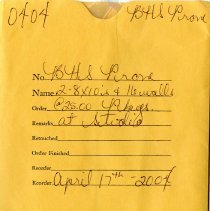 0404 BHS Prom
No. BHS Prom
Name 2-8x10's 4 16 walls
Order @ 25.00 Pkgs.
Remarks at Studio
Retouched
Order Finished
Reorder
Reorder April 17th - 2004